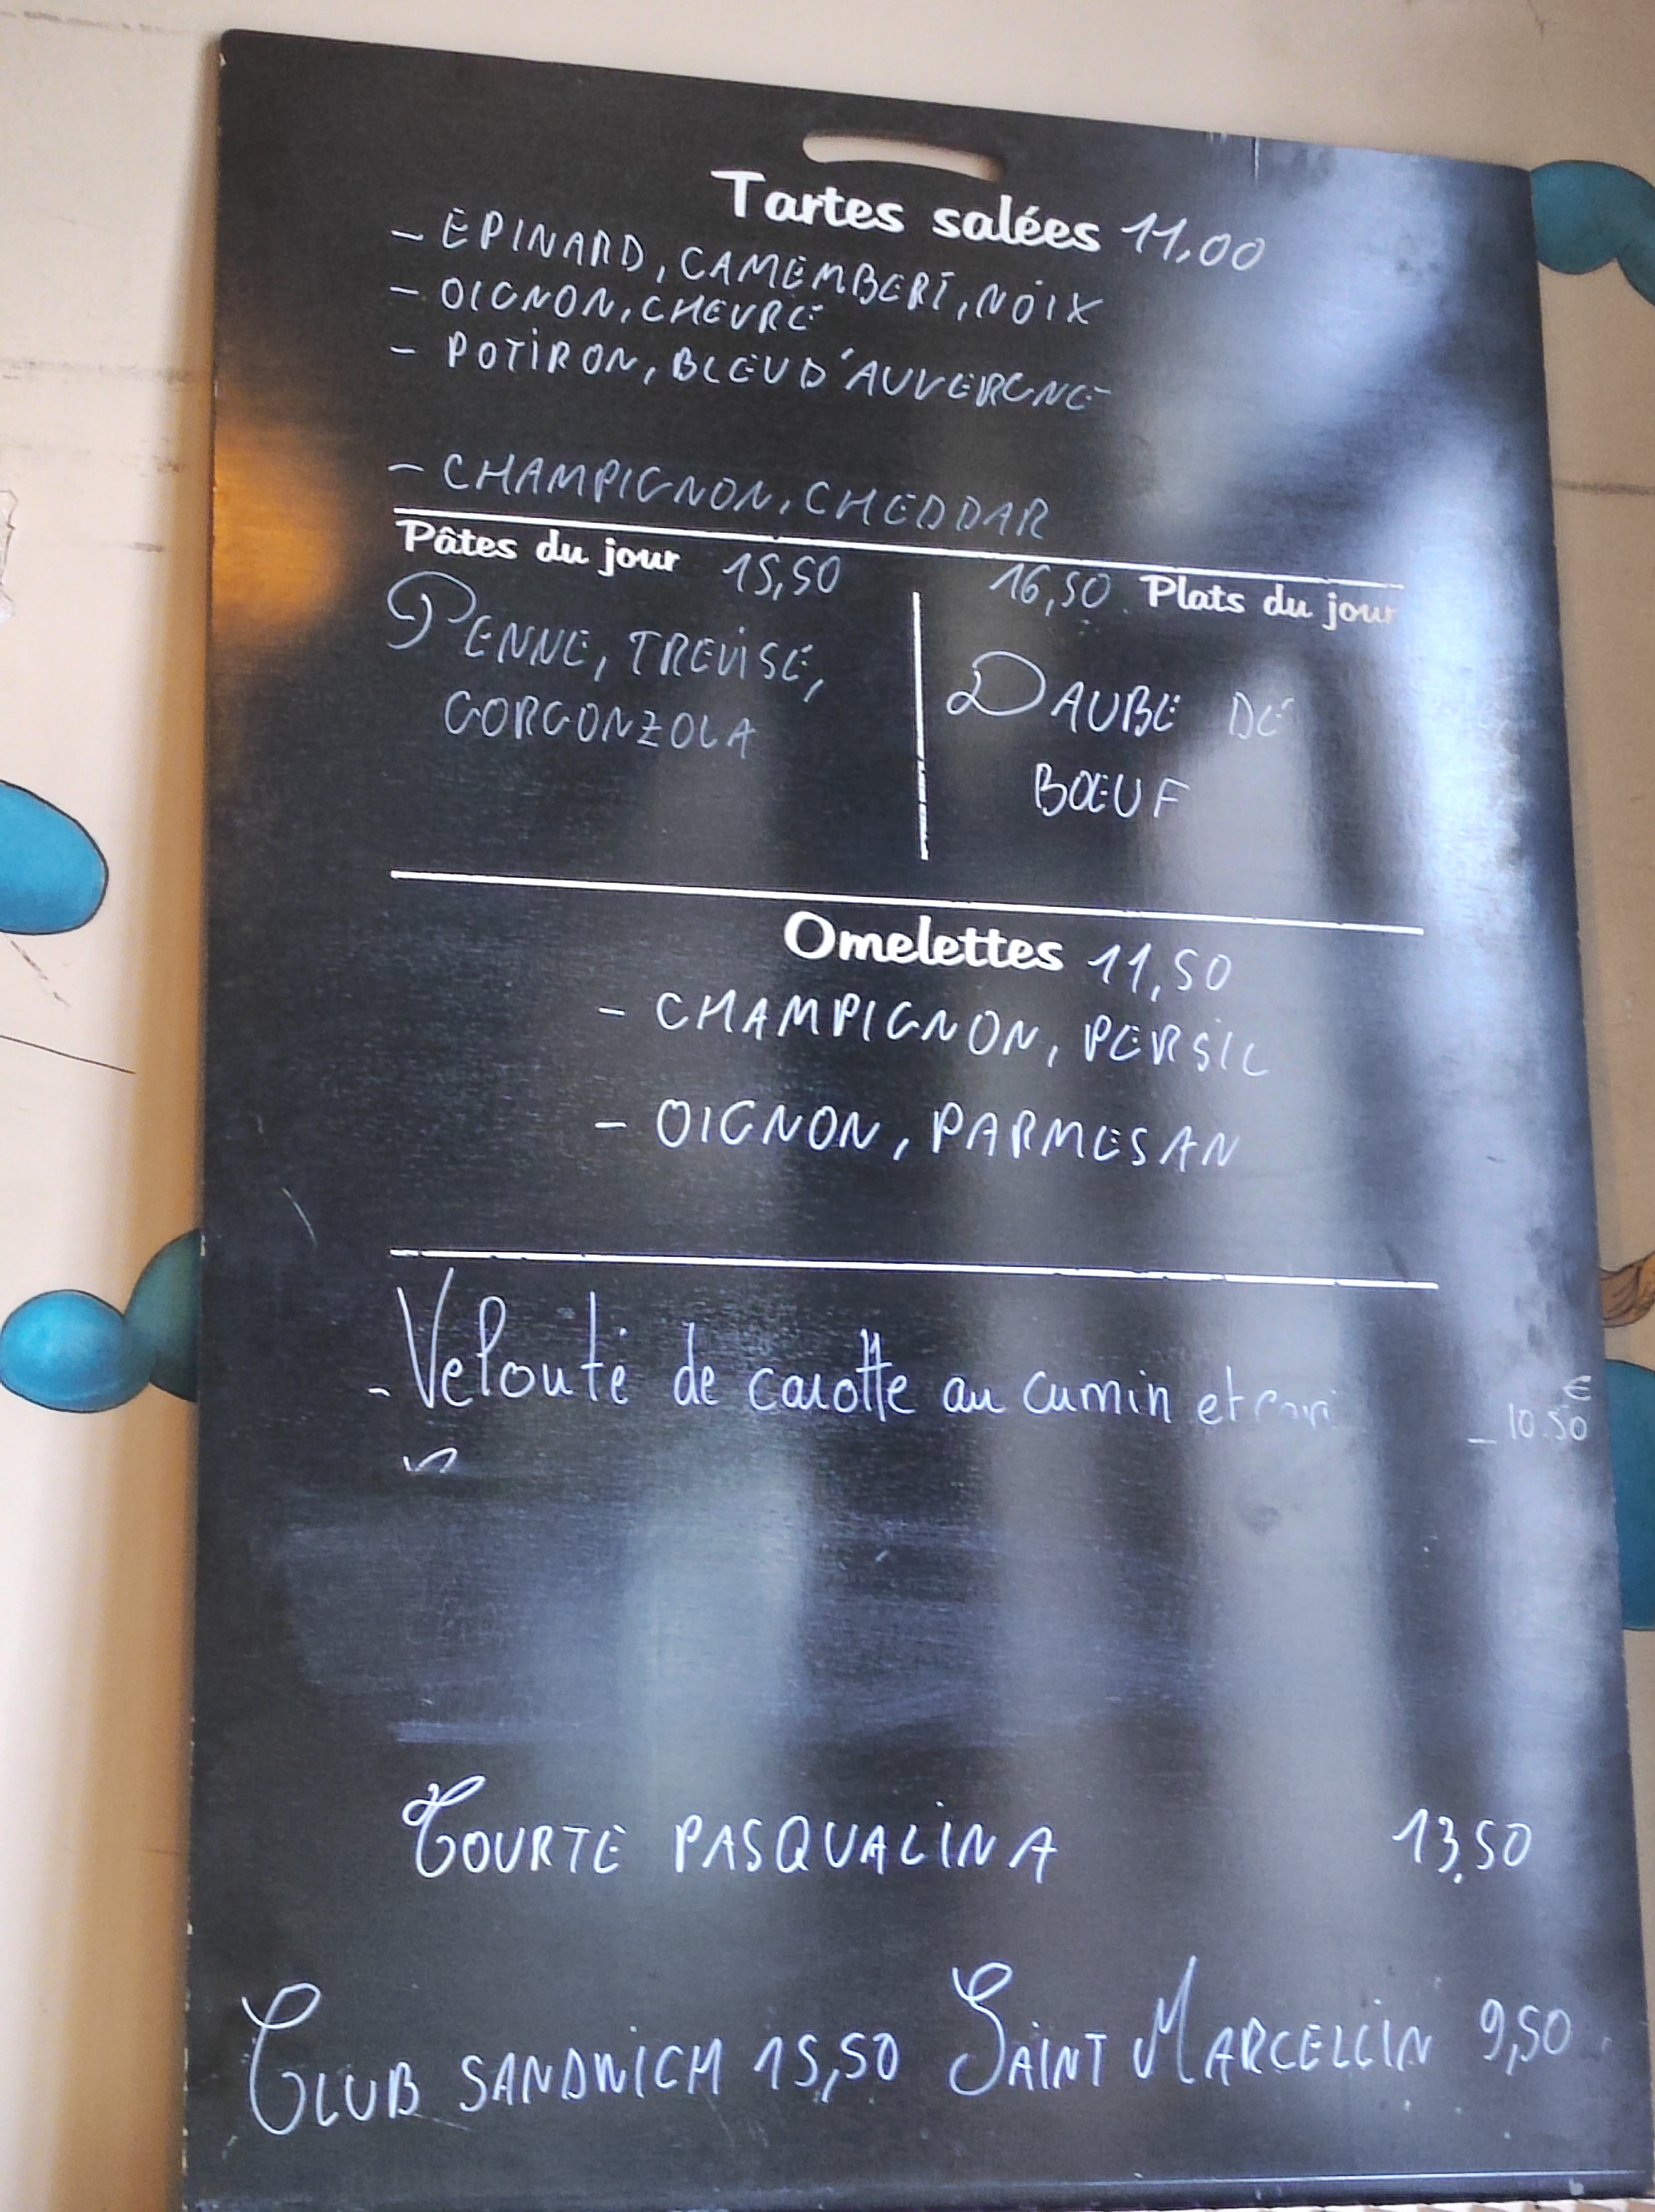 Tartes salées 11,00
- EPINARD, CAMEMBERT, NOIX
- OIGNON, CHEVRE
- POTIRON, BLEU D'AUVERGNE
- CHAMPIGNON, CHEDDAR
Pâtes du jour 15,50
PENNE, TREVISE,
GORGONZOLA
16,50 Plats du jour
DAUBE DE
BŒUF
Omelettes 11,50
- CHAMPIGNON, PERSIL
- OIGNON, PARMESAN
- Velouté de carotte au cumin et
_ 10.50 €
TOURTE PASQUALINA 13,50
CLUB SANDWICH 15,50 SAINT MARCELLIN 9,50